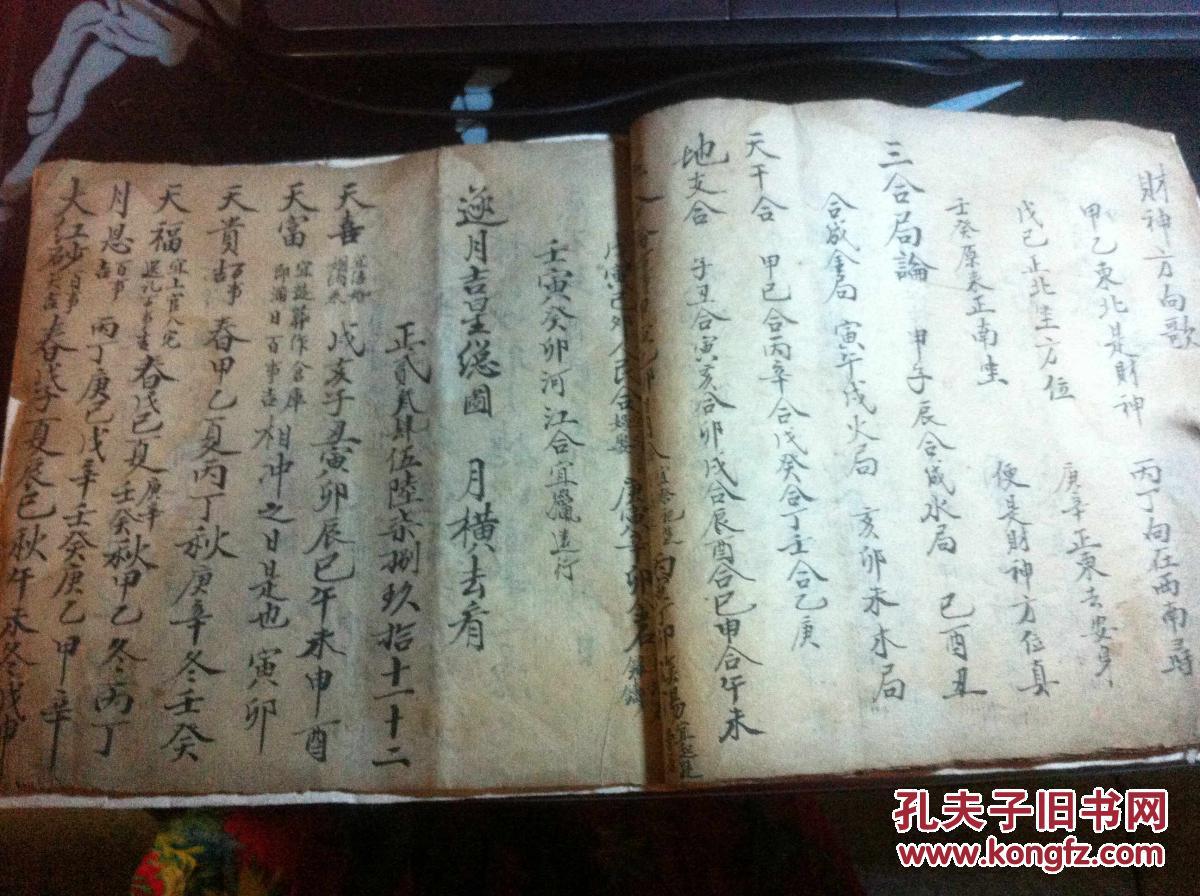 財神方向歌
甲乙東北是財神 丙丁向在西南尋
戊己正北坐方位 庚辛正東去安身
壬癸原来正南坐 便是財神方位真
三合局論 申子辰合成水局 巳酉丑
合成金局 寅午戌火局 亥卯未木局
天干合 甲己合丙辛合戊癸合丁壬合乙庚
地支合 子丑合寅亥合卯戌合辰酉合巳申合午未
壬寅癸卯河江合宜臘進行
逐月吉星総圖 月横去看
正貳叁肆伍陸柒捌玖拾十一十二
天喜 戌亥子丑寅卯辰巳午未申酉
天富 宜葬作倉庫 即满日百事吉 相冲之日是也 寅卯
天貴 百事吉 春甲乙夏丙丁秋庚辛冬壬癸
天福 宜上官入宅 春戊己夏庚辛 壬癸秋甲乙冬丙丁
月恩 百事吉 丙丁庚己戊辛壬癸庚乙甲辛
大红砂 百事 春戌子夏辰巳秋午未冬戌申
孔夫子旧书网
www.kongfz.com